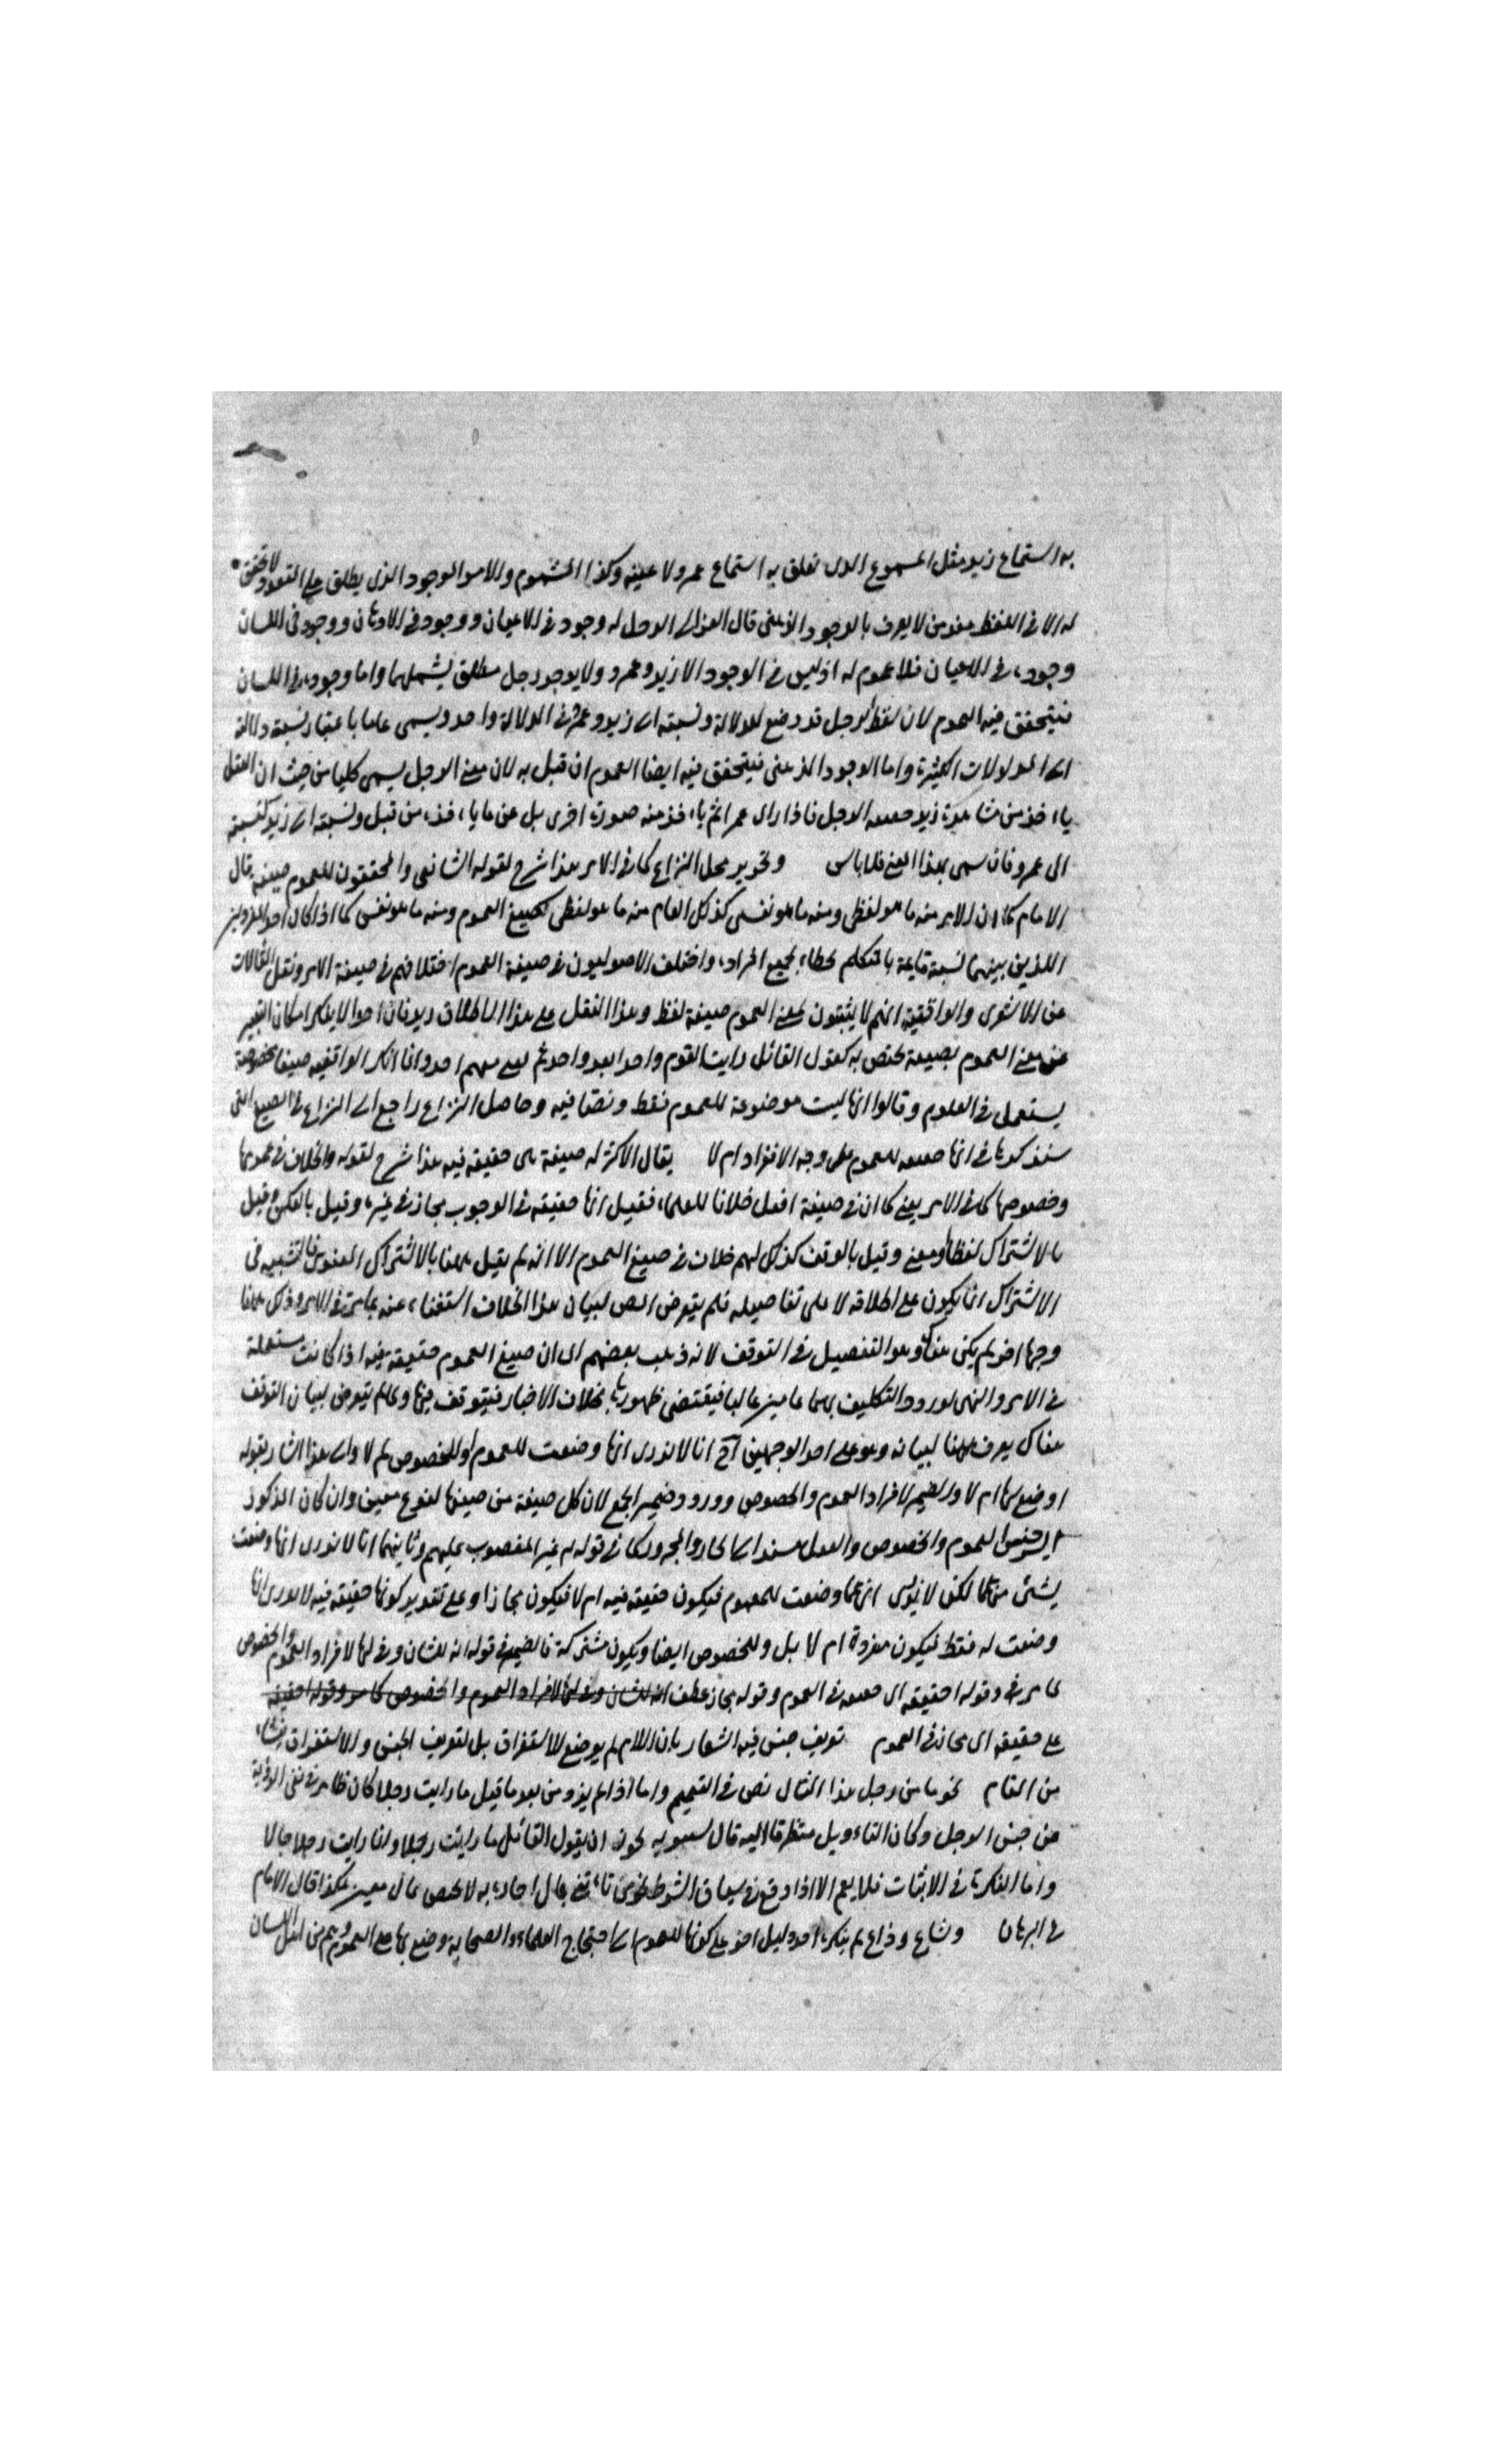 به استماع زيد مثل المسموع الذى تعلق به استماع عمرو لا عينه وكذا المشموم والامر الموجود الذى يطلق على المتعدد لا تحقق
له الا فى اللفظ عند من لا يعرف بالوجود الذهنى قال الغزالى الرجل له وجود فى الاعيان ووجود فى الاذهان ووجود فى اللسان
وجوده فى الاعيان فلا عموم له اذ ليس فى الوجود الا زيد وعمرو ولا يوجد رجل مطلق يشملهما واما وجوده فى اللسان
فيتحقق فيه العموم لان لفظ الرجل قد وضع للدلالة ونسبته الى زيد وعمرو فى الدلالة واحد ويسمى عاما باعتبار نسبة دلالته
الى المدلولات الكثيرة واما الوجود الذهنى فيتحقق فيه ايضا العموم ان قبل به لان معنى الرجل يسمى كليا من حيث ان العقل
ياخذ من مشاهدة زيد حقيقة الرجل فاذا راى عمرا لم ياخذ منه صورة اخرى بل عن ما ياخذه من قبل ونسبته الى زيد كنسبته
الى عمرو فان سمى بهذا المعنى فلا باس وتحرير محل النزاع كما فى الامر هذا شرح لقوله الشافعى والمحققون للعموم صيغة قال
الامام كما ان الامر منه ما هو لفظى ومنه ما هو نفسى كذلك العام منه ما هو لفظى كصيغ العموم ومنه ما هو نفسى كما اذا كان احد
اللذين بينهما نسبة قايمة بالمتكلم بجميع افراده واختلف الاصوليون فى صيغة العموم اختلافهم فى صيغة الامر ونقل المقالات
عن الاشعرى والواقفية انهم لا يثبتون لمعنى العموم صيغة لفظ وهذا النقل على هذا الاطلاق فان احدا لا ينكر امكان التعبير
عن معنى العموم بصيغة تختص به كقول القائل رايت القوم واحدا بعد واحد ثم منهم احد وانما انكر الواقفية صيغا مخصوصة
يستعمل فى العلوم وقالوا انها ليست موضوعة للعموم فقط ونصا فيه وحاصل النزاع راجع الى النزاع فى الصيغ التى
سنذكرها فى انها للعموم على وجه الانفراد ام لا يقال الاكثر له صيغة هى حقيقة فيه هذا شرح لقوله والخلاف فى عمومها
وخصوصها كما فى الامر يعنى كما ان فى صيغة افعل خلافا للعلماء فقيل انها حقيقة فى الوجوب مجاز فى غيره وقيل بالعكس وقيل
بالاشتراك لفظا ومعنى وقيل بالوقف كذلك لهم خلاف فى صيغ العموم الا انه لم يقل ههنا بالاشتراك المعنوى فالتشبيه فى
الاشتراك انما يكون على اطلاقه لا على تفاصيله فلم يتعرض المص لبيان هذا الخلاف استغناء عنه بما مر فى الامر وذكر ههنا
وجها اخر لم يكن هناك وهو التفصيل فى التوقف لانه ذهب بعضهم الى ان صيغ العموم حقيقة فيه اذا كانت مستعملة
فى الامر والنهى لورود التكليف بهما عامين غالبا فيقتضى ظهورها بخلاف الاخبار فيتوقف فيها ولما لم يتعرض لبيان التوقف
هناك يعرف ههنا لبيانه وهو على احد الوجهين انا لا ندرى انها وضعت للعموم او للخصوص ام لا والى هذا اشار بقوله
اوضع لها ام لا والضمير لافراد العموم والخصوص وورود ضمير الجمع لان كل صيغة من صيغها لنوع معين وان كان المذكور
الجنس العموم والخصوص والفعل مسند الى الجار والمجرور كما فى قوله غير المغضوب عليهم وثانيهما انا لا ندرى انها وضعت
بشئ منهما لكن لا ندرى انها وضعت للعموم فيكون حقيقة فيه ام لا فيكون مجازا وعلى تقدير كونها حقيقة فيه لا ندرى انها
وضعت له فقط فيكون مفردة ام لا بل وللخصوص ايضا ويكون مشتركة فالضمير فى قوله انه للشان وفى لها لافراد العموم والخصوص
كما مر وقوله حقيقة اى حقيقة فى العموم وقوله مجاز عطف
على حقيقة اى مجاز فى العموم تعريف جنس فيه اشعار بان اللام لم يوضع للاستغراق بل لتعريف الجنس والاستغراق ينشأ
من المقام نحو ما من رجل هذا المثال نص فى التعميم واما اذا لم يزد من بعد ما قيل ما رايت رجلا كان ظاهر فى نفى الرؤية
عن جنس الرجل وكان التاويل متطرقا اليه قال سيبويه يجوز ان يقول القائل ما رايت رجلا وانما رايت رجالا
واما النكرة فى الاثبات فلا يعم الا اذا وقع فى سياق الشرط نحو من تاتنى بمال اجازه به لا يختص بمال معين هكذا قال الامام
فى البرهان وشاع وذاع لم ينكره احد دليل اخر على كونها للعموم اى احتجاج العلماء والصحابة وضيع بها على العموم وهم من اهل اللسان